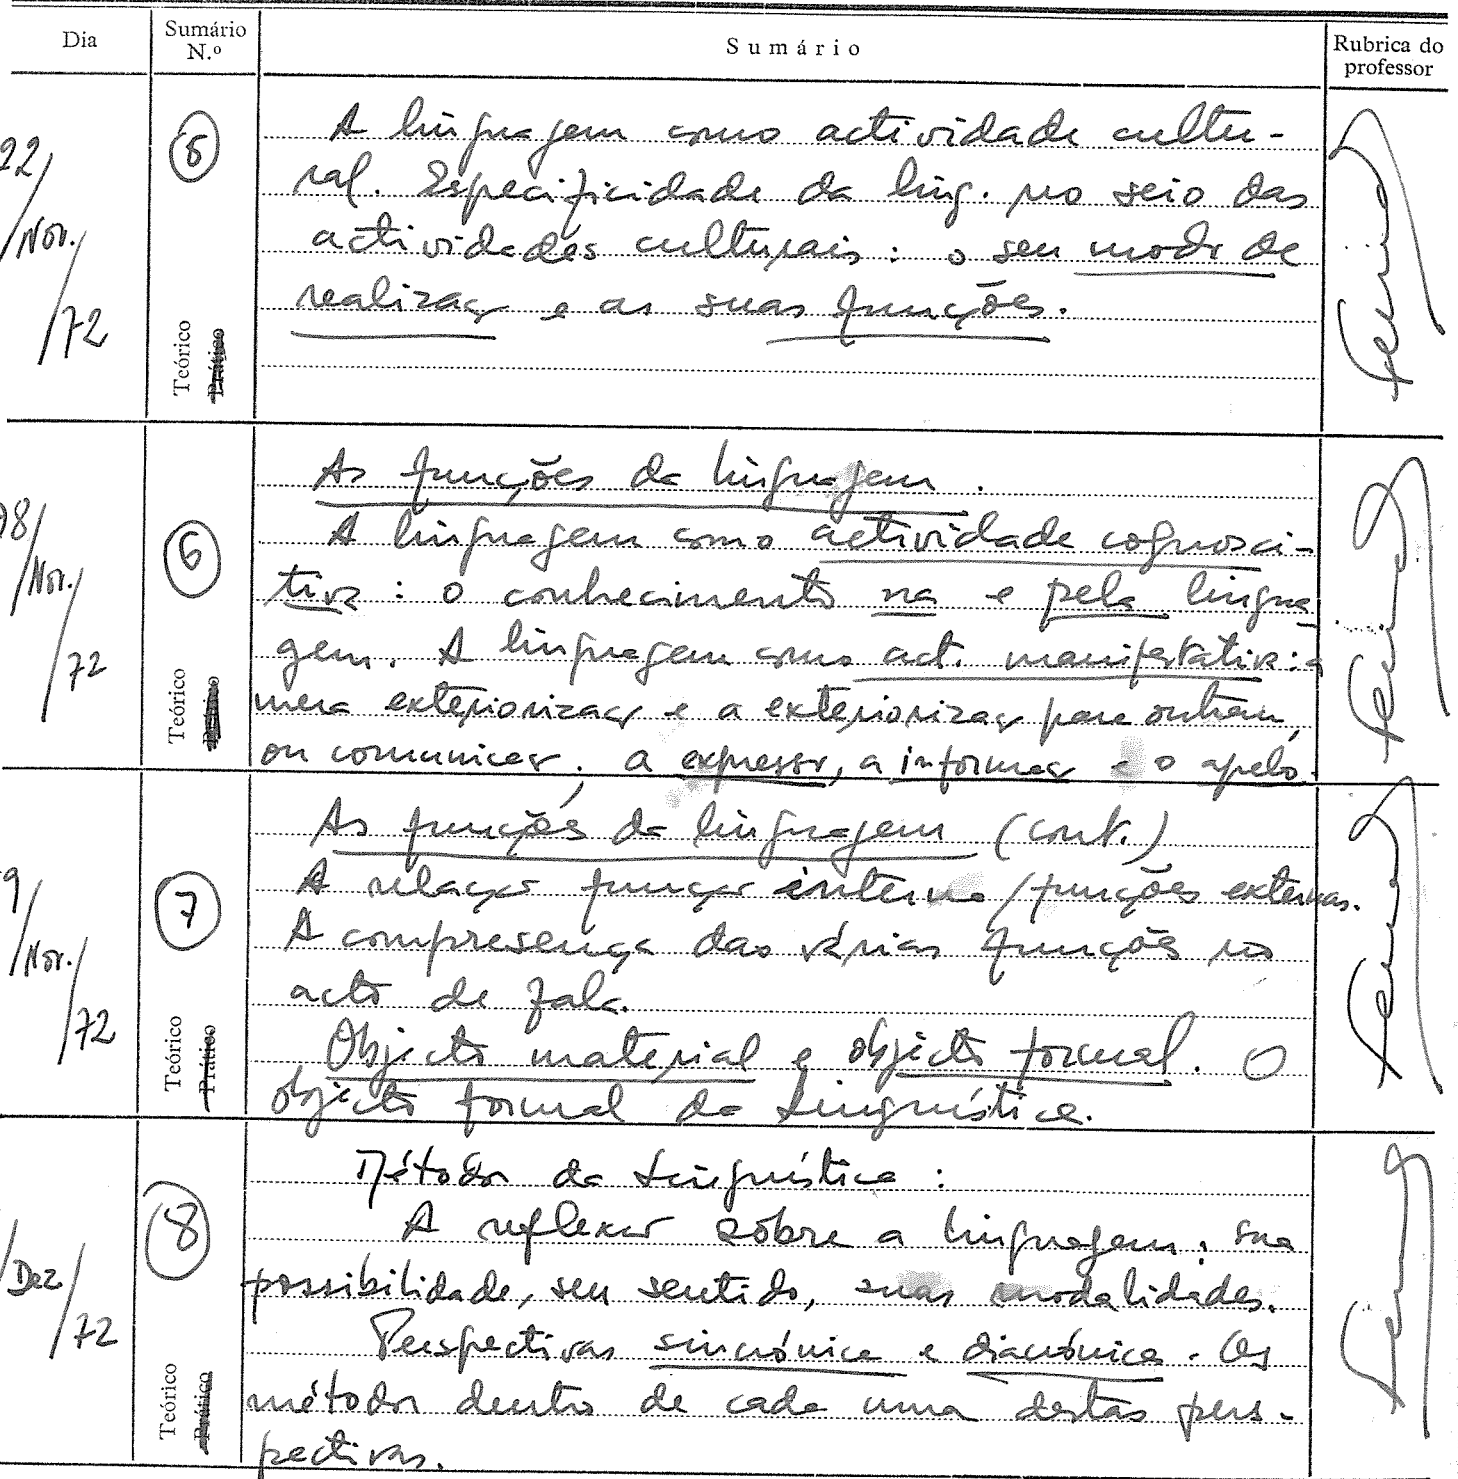 Dia
Sumário
N.º
Sumário
Rubrica do
professor
22/
Nov.
/72
5
Teórico
Prático
A linguagem como actividade cultu-
ral. Especificidade da ling. no seio das
actividades culturais: o seu modo de
realização e as suas funções.
8/
Nov.
/72
6
Teórico
As funções da linguagem.
A linguagem como actividade cognosci-
tiva: o conhecimento na e pela lingua
gem. A linguagem como act. manifestativa: a
mera exteriorização e a exteriorização para outrem,
ou comunicação; a expressão, a informação e o apelo.
9/
Nov.
/72
7
Teórico
Prático
As funções da linguagem (cont.)
A relação função interna/funções externas.
A compresença das várias funções no
acto de fala.
Objecto material e objecto formal. O
objecto formal da Linguística.
/Dez/
72
8
Teórico
Prático
Métodos da Linguística:
A reflexão sobre a linguagem, sua
possibilidade, seu sentido, suas modalidades.
Perspectivas sincrónica e diacrónica. Os
métodos dentro de cada uma destas pers-
pectivas.